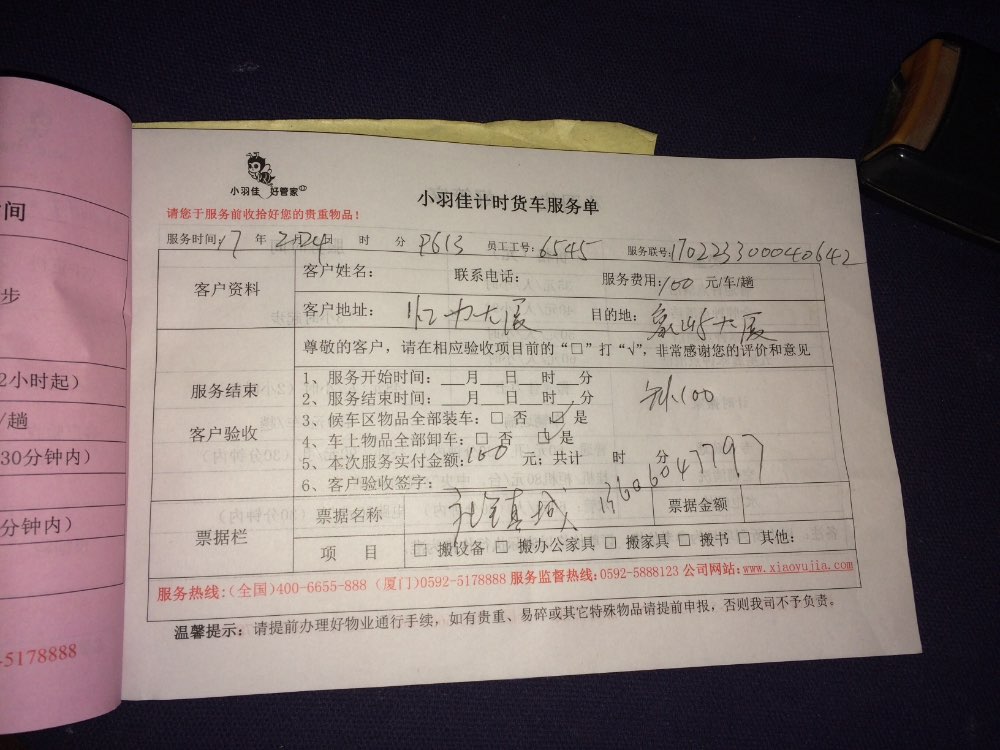 小羽佳 好管家
小羽佳计时货车服务单
请您于服务前收拾好您的贵重物品！
服务时间：17 年 2月24日 时 分 P613 员工工号：6545 服务联号：170223300040642
客户资料
客户姓名： 联系电话： 服务费用：100 元/车/趟
客户地址： 大厦 目的地： 大厦
尊敬的客户，请在相应验收项目前的“□”打“√”，非常感谢您的评价和意见
服务结束
客户验收
1、服务开始时间：__月__日__时__分
2、服务结束时间：__月__日__时__分
100
3、候车区物品全部装车：□ 否 □ 是
4、车上物品全部卸车：□ 否 □ 是
5、本次服务实付金额：100 元；共计 时 分
6、客户验收签字： 13606047797
票据栏
票据名称 票据金额
项 目 □ 搬设备 □ 搬办公家具 □ 搬家具 □ 搬书 □ 其他：
服务热线：（全国）400-6655-888（厦门）0592-5178888 服务监督热线：0592-5888123 公司网站：www.xiaoyujia.com
温馨提示：请提前办理好物业通行手续，如有贵重、易碎或其它特殊物品请提前申报，否则我司不予负责。
间
步
2小时起）
/趟
30分钟内）
分钟内）
-5178888